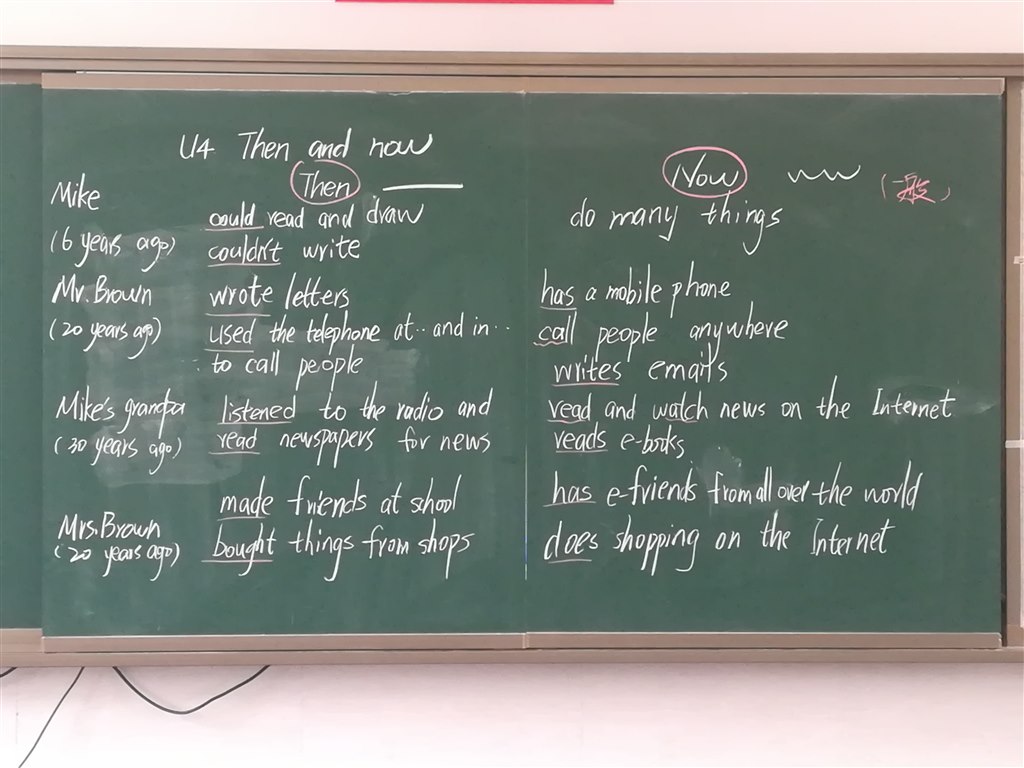 U4 Then and now
Then
Mike
(6 years ago)
could read and draw
couldn't write
Mr. Brown
(20 years ago)
wrote letters
used the telephone at.. and in..
to call people
Mike's grandpa
(30 years ago)
listened to the radio and
read newspapers for news
made friends at school
Mrs. Brown
(20 years ago)
bought things from shops
Now
(一般)
do many things
has a mobile phone
call people anywhere
writes emails
read and watch news on the Internet
reads e-books
has e-friends from all over the world
does shopping on the Internet